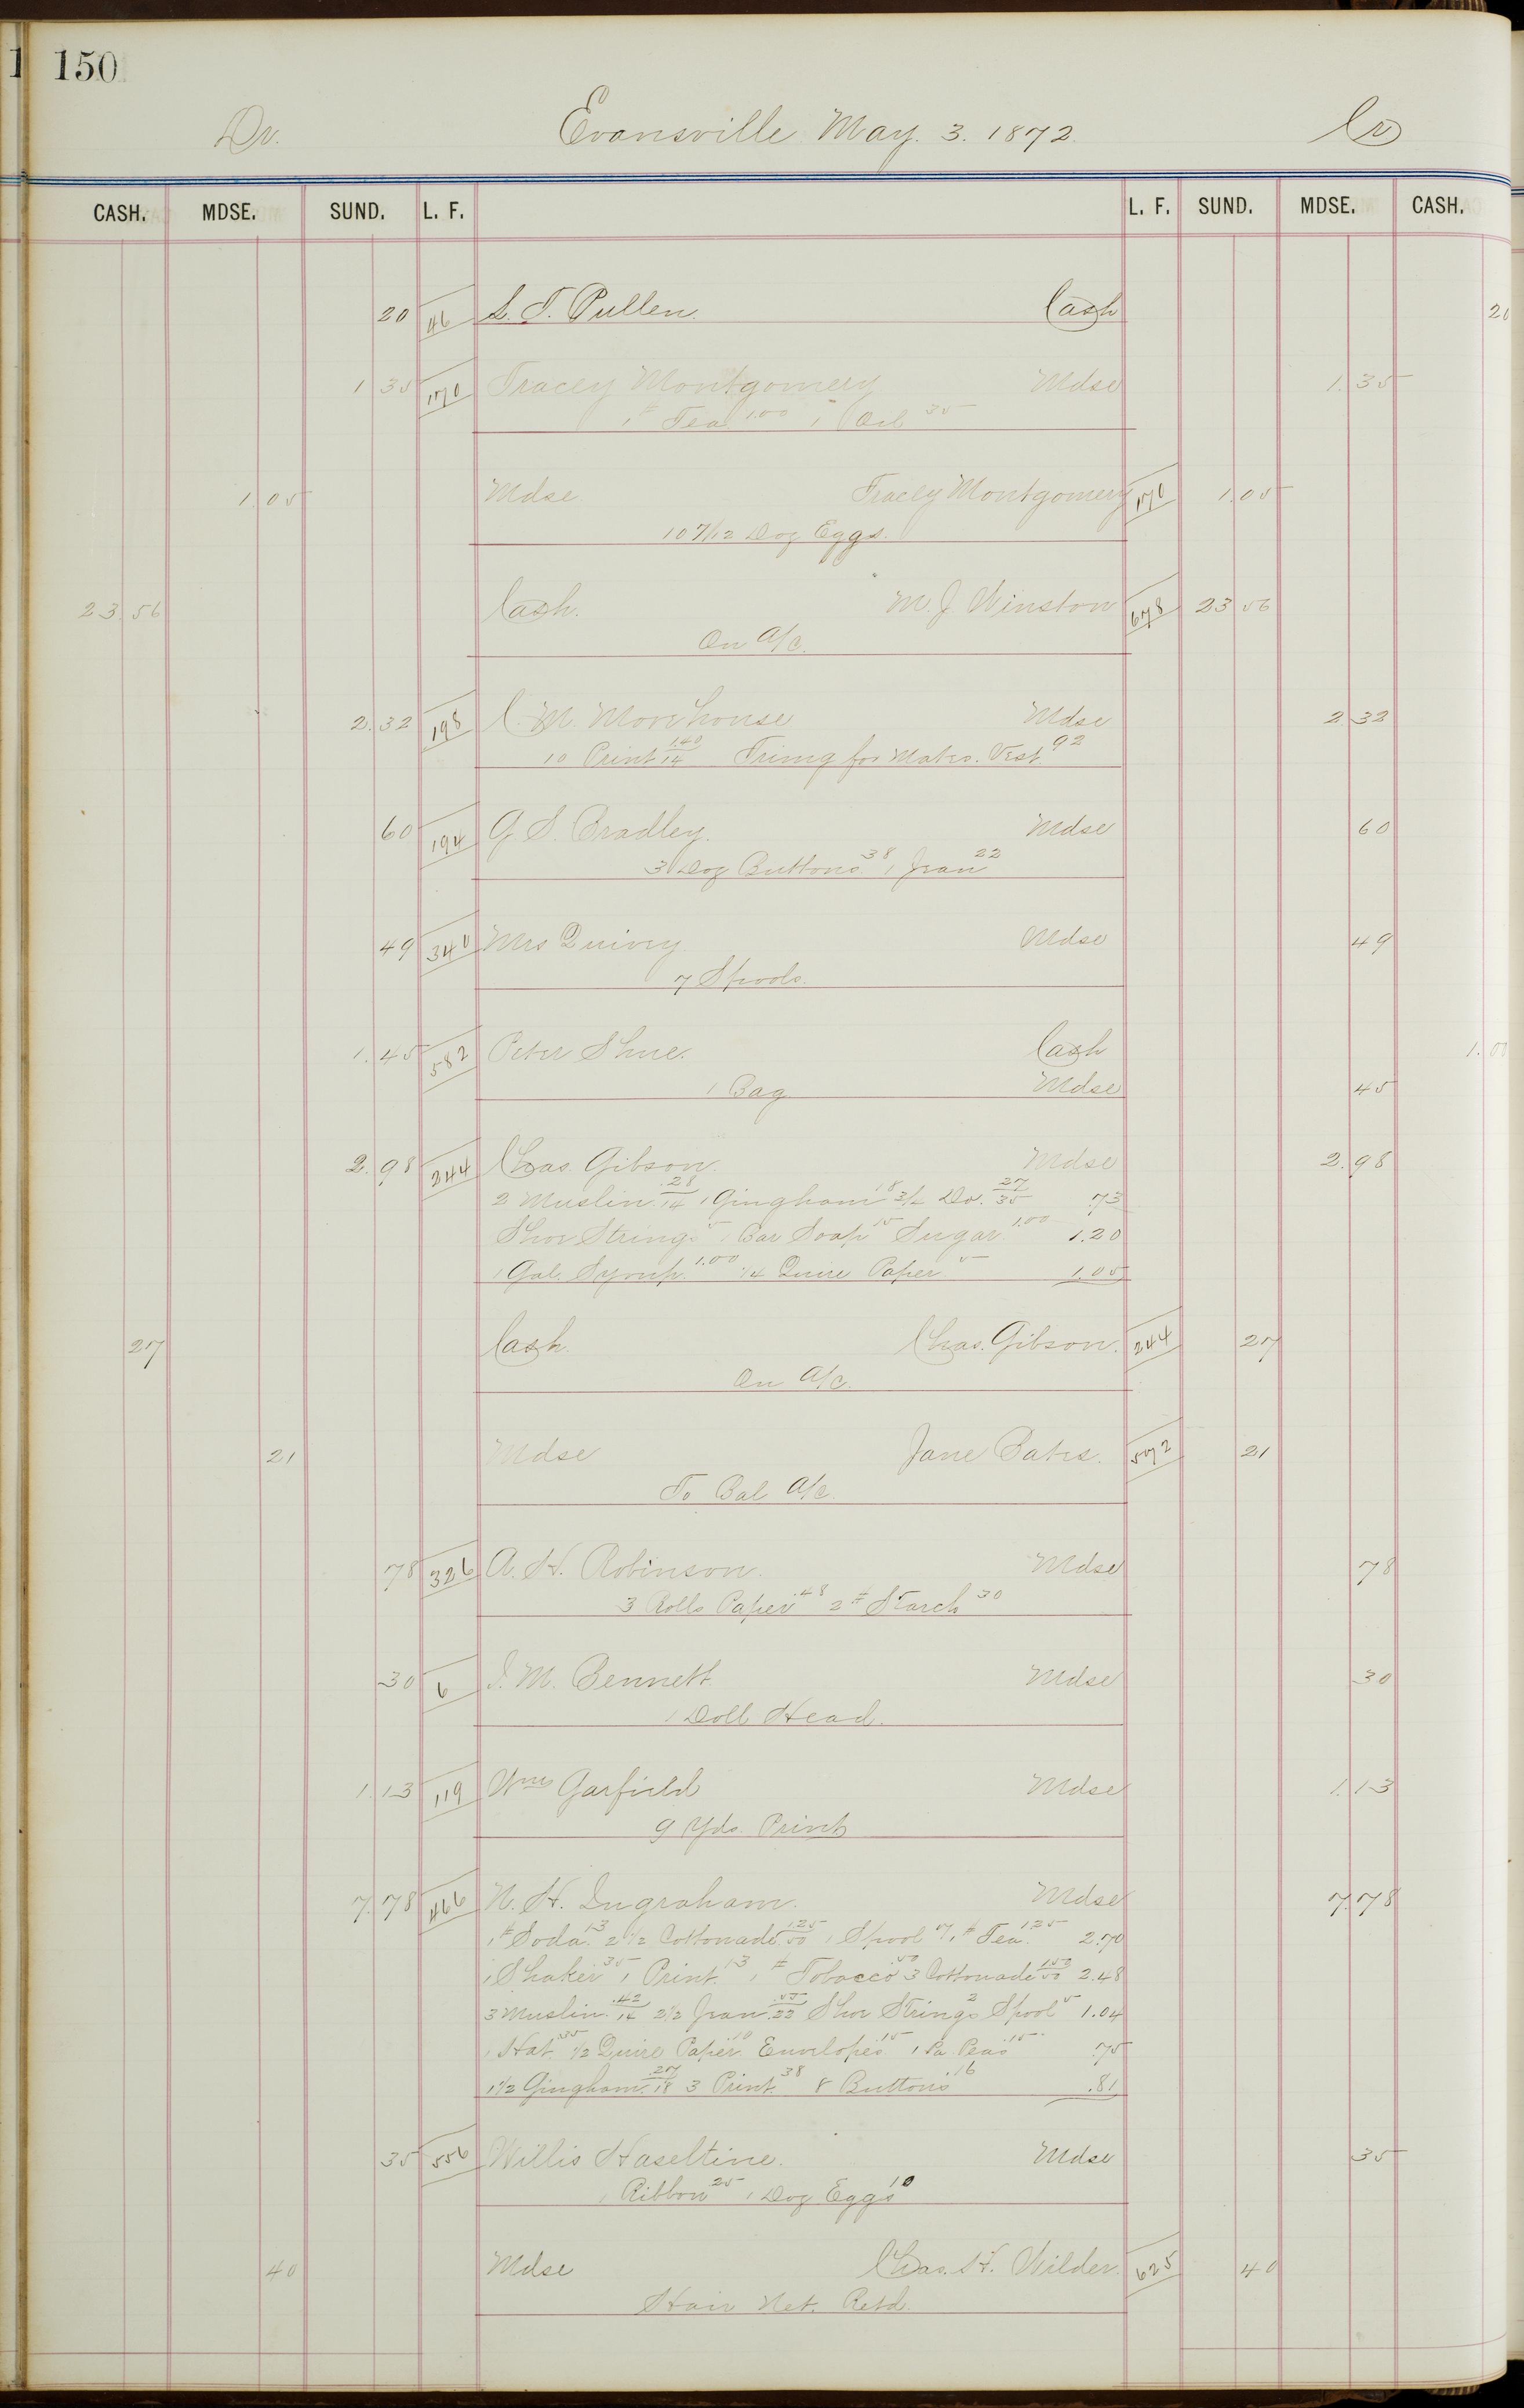 150
Dr. Evansville May. 3. 1872. Cr
CASH. MDSE. SUND. L. F. L. F. SUND. MDSE. CASH.
20 46 L. T. Pullen. Cash 20
1 35 170 Tracey Montgomery Mdse 1.35
1 # Tea 1.00 1 Oil 35
1.05 Mdse Tracey Montgomery 170 1.05
10 7/12 Doz Eggs.
23.56 Cash. M. J. Winston 678 23 56
On a/c.
2.32 198 C. M. Morehouse Mdse 2.32
10 Print 1.40/14 Trimg for Vest. 92
60 194 G. S. Bradley. Mdse 60
3 Doz Buttons 38 1 Jean 22
49 340 Mrs Quivey Mdse 49
7 Spools.
1.45 582 Peter Shue. Cash 1.00
1 Bag. Mdse 45
2.98 244 Chas. Gibson. Mdse 2.98
2 Muslin .28/14 1 Gingham 18 3/4 Do. 27/35 .73
Shoe Strings 5 1 Bar Soap 15 Sugar 1.00 1.20
1 Gal. Syrup. 1.00 1/4 Quire Paper 5 1.05
27 Cash. Chas. Gibson. 244 27
On a/c.
21 Mdse Jane Bates. 572 21
To Bal a/c.
78 326 A. H. Robinson. Mdse 78
3 Rolls Paper .48 2 # Starch 30
30 6 J. M. Bennett Mdse 30
1 Doll Head.
1.13 119 Wm Garfield Mdse 1.13
9 Yds. Print
7.78 466 N. H. Ingraham. Mdse 7.78
1 # Soda. 13 2 1/2 Cottonade 1.25/50 1 Spool 7 1 # Tea. 1.25 2.70
1 Shaker 35 1 Print. 13 1 # Tobacco 50 3 Cottonade 1.50/50 2.48
3 Muslin .42/14 2 1/2 Jean .55/22 Shoe Strings 2 Spool 5 1.04
1 Hat. .35 1/2 Quire Paper 10 Envelopes 15 1 Pa. Peas 15 .75
1 1/2 Gingham .27/18 3 Print. 38 8 Buttons 16 .81
35 556 Willis Haseltine. Mdse 35
1 Ribbon 25 1 Doz Eggs 10
40 Mdse Chas. H. Wilder. 625 40
Hair Net. Retd.